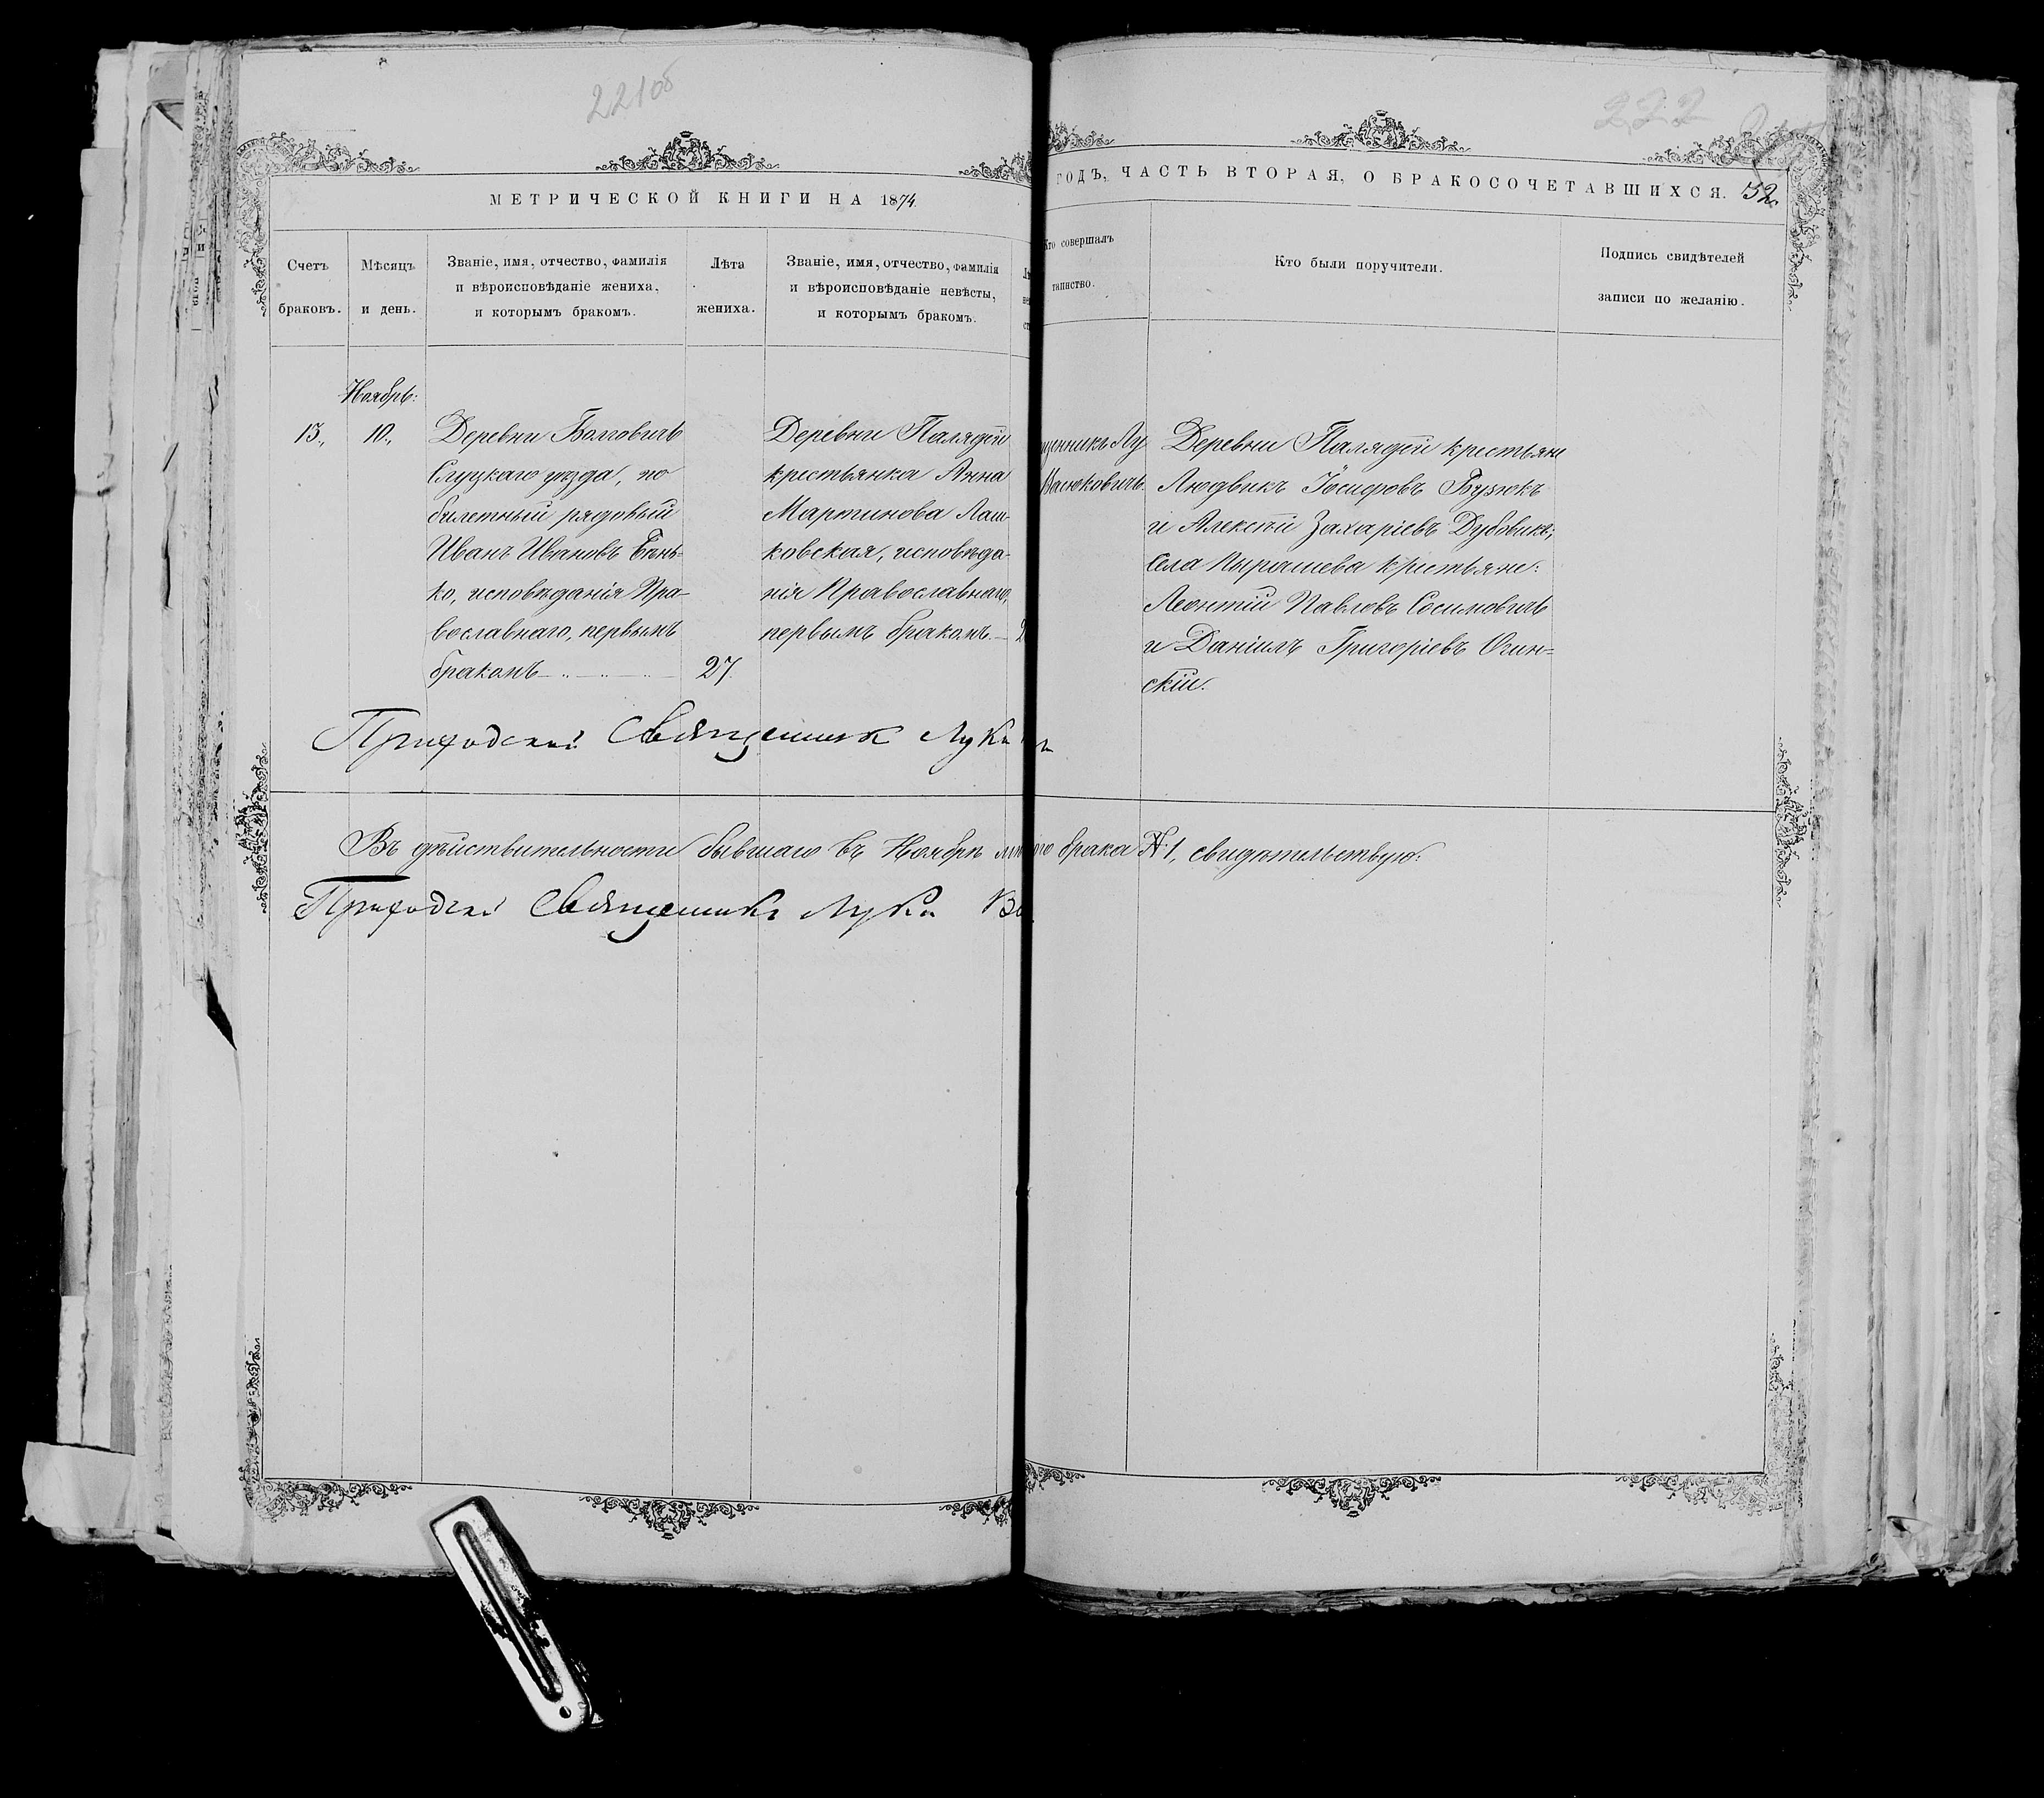 221об
222
МЕТРИЧЕСКОЙ КНИГИ НА 1874
ГОДЪ, ЧАСТЬ ВТОРАЯ, О БРАКОСОЧЕТАВШИХСЯ. 52.
Счетъ браковъ.
Мѣсяцъ и день.
Званіе, имя, отчество, фамилія
и вѣроисповѣданіе жениха,
и которымъ бракомъ.
Лѣта жениха.
Званіе, имя, отчество, фамилія
и вѣроисповѣданіе невѣсты,
и которымъ бракомъ.
Кто совершалъ
таинство.
Кто были поручители.
Подпись свидѣтелей
записи по желанію.
Ноябрь:
13., 10.,
Деревни
Слуцкаго уѣзда, по
билетный рядовый
Иванъ Ивановъ Бѣнь-
ко, исповѣданія Пра-
вославнаго, первымъ
бракомъ
27.
Деревни Палядей
крестьянка Анна
Мартинова Лаш-
ковская, исповѣда-
нія Православнаго,
первымъ бракомъ.
щенникъ Лу
Васюковичъ.
Деревни Палядей крестьяне
Людвикъ Іосифовъ Бузюкъ
и Алексѣй Захаріевъ Дубовикъ;
села Пырашева крестьяне:
Леонтій Павловъ Сосимовичъ
и Даніилъ Григоріевъ Огин-
скій.
Приходскій Священникъ Лука
Въ дѣйствительности бывшаго въ Ноябрѣ брака № 1, свидѣтельствую:
Приходскій Священникъ Лука Ва